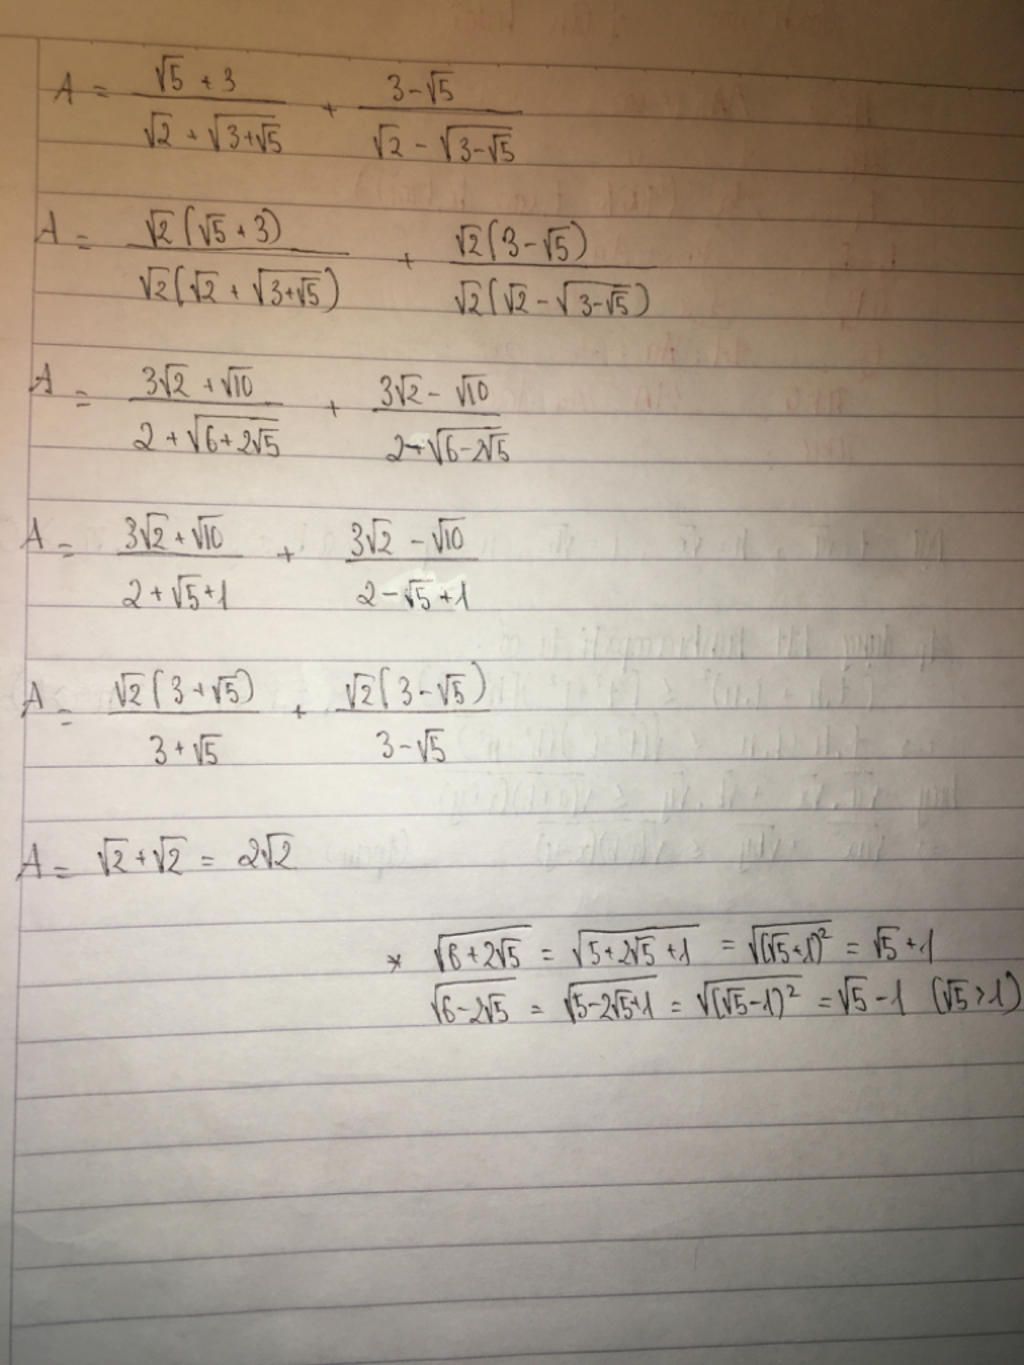 A = (√5 + 3)/(√2 + √(3+√5)) + (3-√5)/(√2 - √(3-√5))
A = √2(√5 + 3)/(√2(√2 + √(3+√5))) + √2(3-√5)/(√2(√2 - √(3-√5)))
A = (3√2 + √10)/(2 + √(6+2√5)) + (3√2 - √10)/(2 - √(6-2√5))
A = (3√2 + √10)/(2 + √5 + 1) + (3√2 - √10)/(2 - √5 + 1)
A = √2(3 + √5)/(3 + √5) + √2(3 - √5)/(3 - √5)
A = √2 + √2 = 2√2
* √(6+2√5) = √(5+2√5+1) = √((√5+1)²) = √5 + 1
√(6-2√5) = √(5-2√5+1) = √((√5-1)²) = √5 - 1 (√5 > 1)